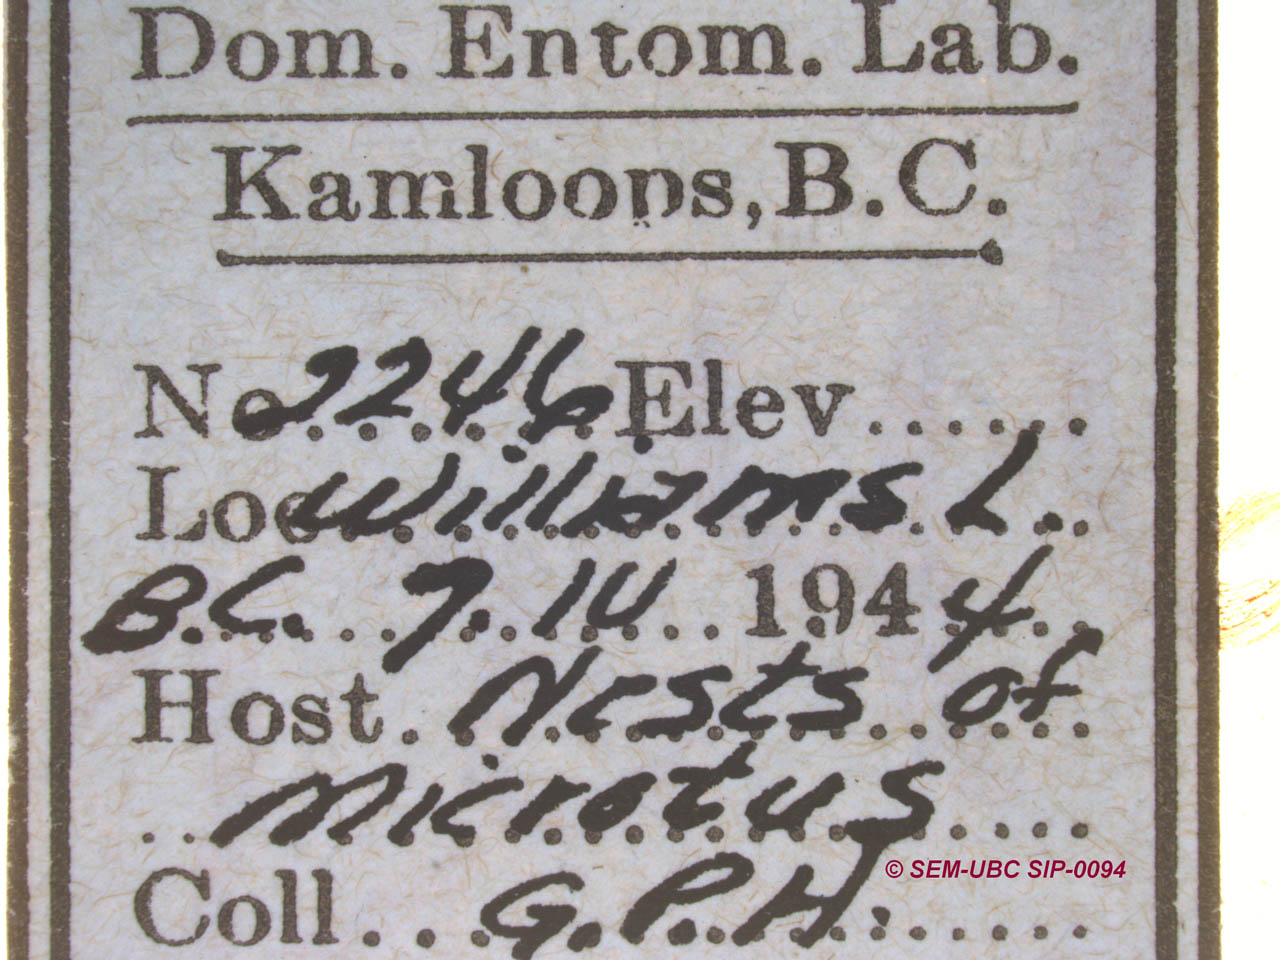 Dom. Entom. Lab.
Kamloops, B.C.
No 2246 Elev......
Loc Williams L.
B.C. 7.IV 1944
Host. Nests of
Microtus
Coll... G.P.H.
© SEM-UBC SIP-0094